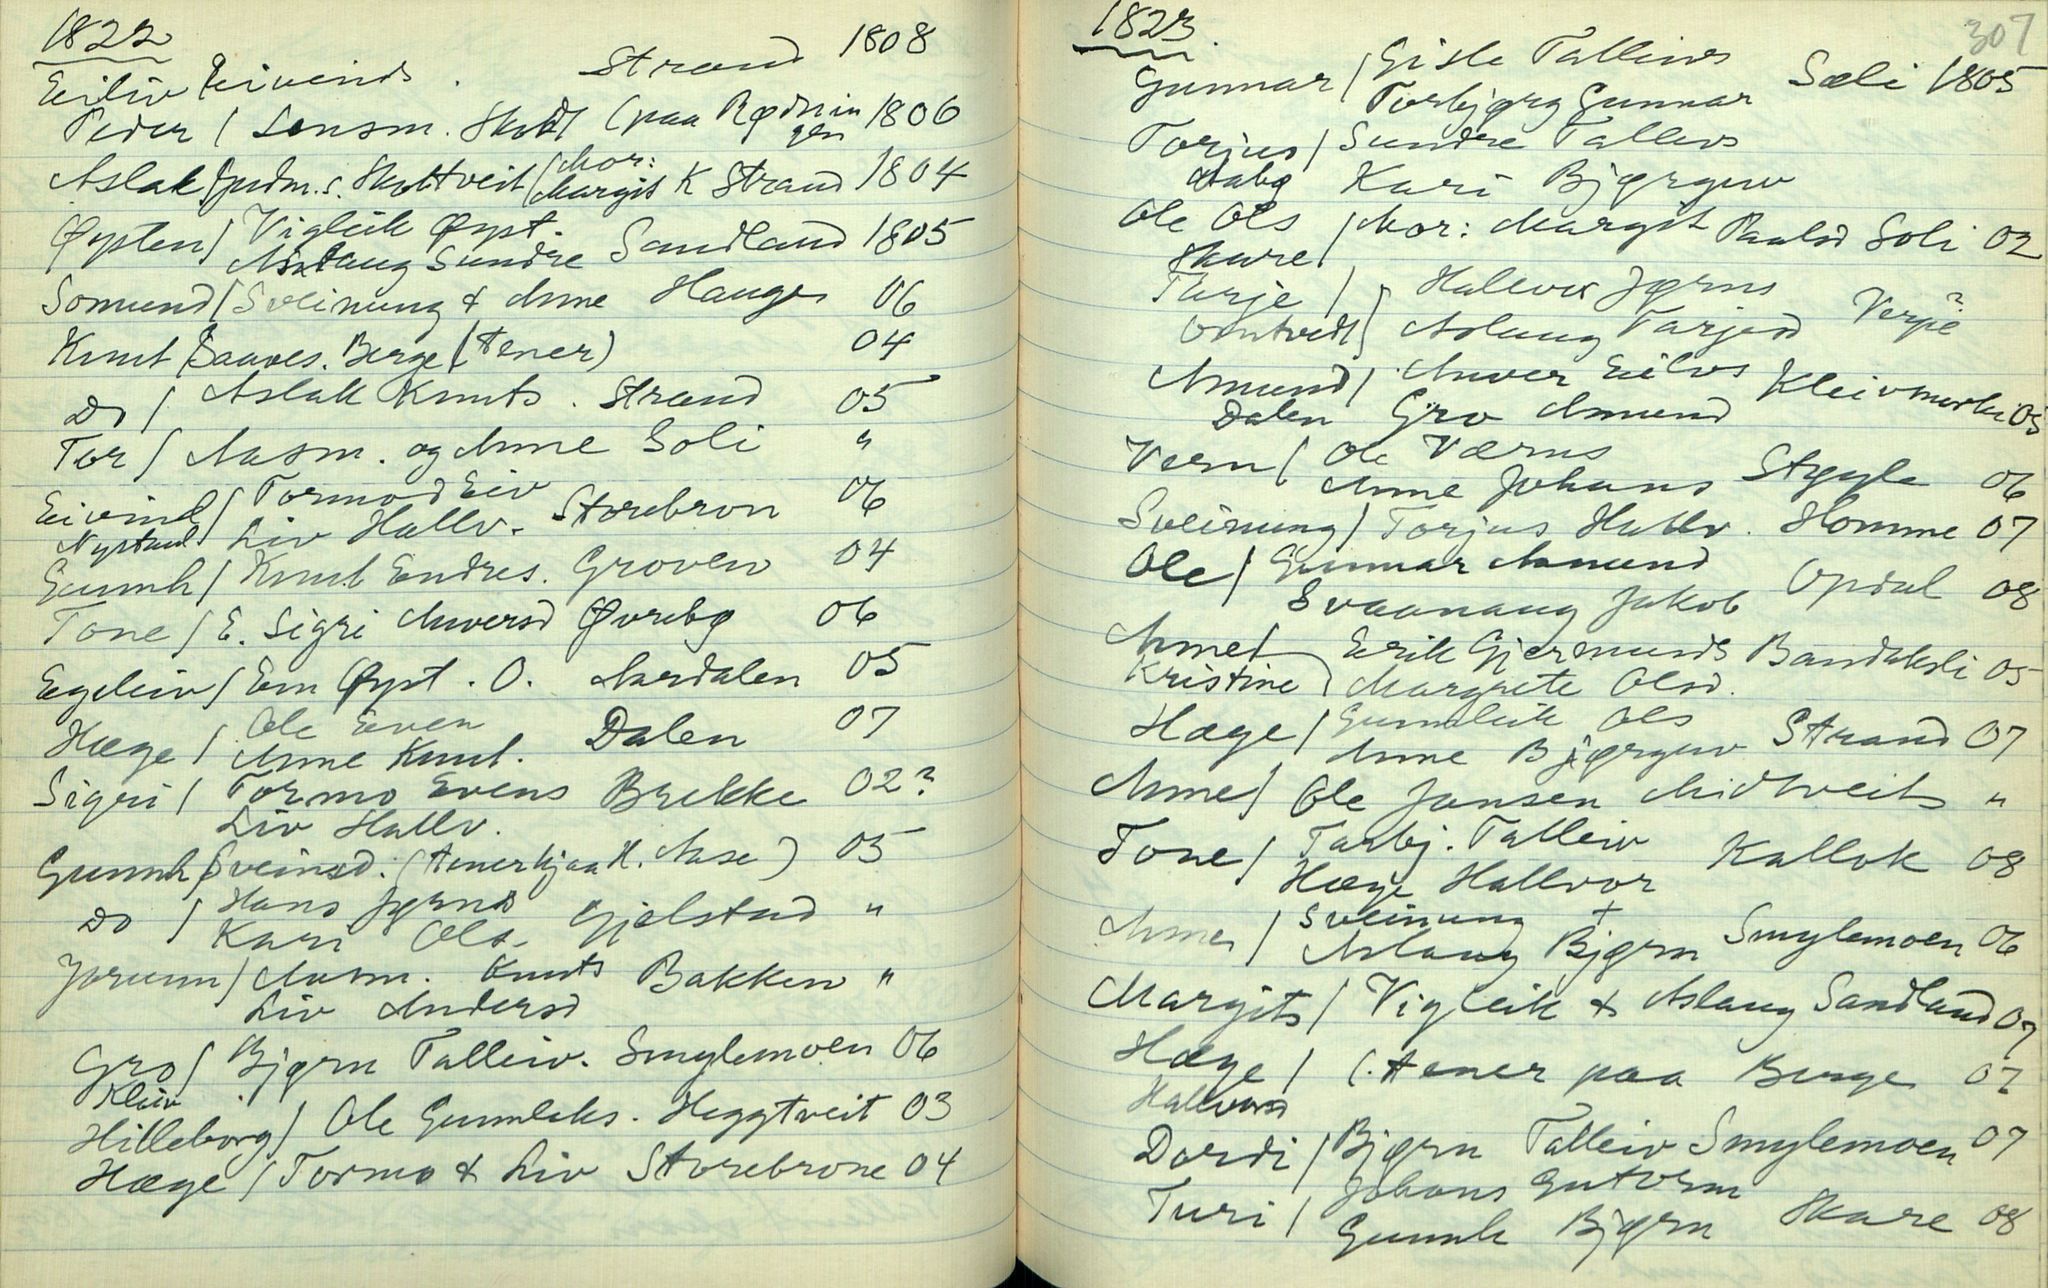 1822
Eiliv Eivinds. Strand 1808
Peder / Lensm. Hvidt (paa Rødnin 1806
gen
Mor:
Aslak / prdm. s. Skottveit / Margit K Strand 1804
Øysten / Vigleik Øyst.
Aslaug Sundre Sandland 1805
Somund / Sveinung & Anne Hauge 06
Knut Saaves. Berge (tener) 04
Do / Aslak Knuts. Strand 05
Tor / Aasm. og Anne Soli "
Eivind / Tormod Eiv
Nystaul Liv Hallv. Storebron 06
Gunnh / Knut Endres. Groven 04
Tone / E. Sigri Anversd Øvrebø 06
Egeleiv / Em Øyst. O. Aardalen 05
Hæge / Ole Even
Anne Knut. Dalen 07
Sigri / Tormo Evens Brekke 02?
Liv Hallv.
Gunnh Sveinsd. (tener hjaa H. Aase) 05
Do / Hans Jørnds
Kari Ols. Gjelstad "
Jorunn / Aasm. Knuts Bakken "
Liv Andersd
Gro / Bjørn Talleiv. Smylemoen 06
Kleiv
Hilleborg / Ole Gunnleks. Heggtveit 03
Hæge / Tormo & Liv Storebrone 04
307
1823
Gunnar / Gisle Talleivs
Torbjørg Gunnar Sæli 1805
Torjus / Sundre Tallevs
Dabø Kari Bjørguv
Ole Ols / Mor: Margit Paalsd Soli 02
Skare
Tarje / Hallvor Jørns
Omtvedt Aslaug Tarjesd Verpe?
Amund / Anver Eilvs Kleivmarki 05
Dalen Gro Amund
Vern / Ole Værns
Anne Johans Stygle 06
Sveinung / Torjus Hallv. Homme 07
Ole / Gunnar Amund
Svaanaug Jakob Opdal 08
Anne / Erik Gjermunds Bandaksli 05
Kristine Margrete Olsd.
Hæge / Gunnleik Ols
Anne Bjørguv Strand 07
Anne / Ole Jansen Midtveit "
Tone / Tarbj. Talleiv
Hæge Hallvor Kallok 08
Anne / Sveinung +
Aslaug Bjørn Smylemoen 06
Margit / Vigleik & Aslaug Sandland 07
Hæge / (tener paa Berge 07
Hallvors
Dordi / Bjørn Talleiv Smylemoen 07
Turi / Johans Gutorm
Gunnh Bjørn Skare 08